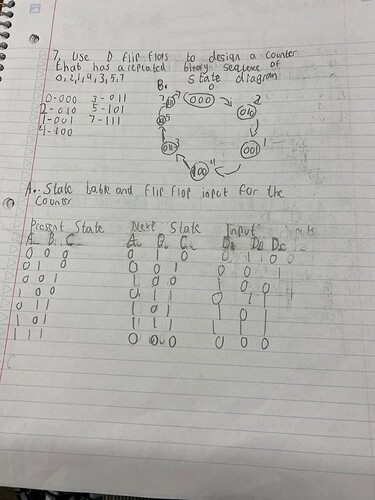 7. Use D flip flops to design a counter
that has a repeated binary sequence of
0, 2, 1, 4, 3, 5, 7
B. State diagram
0-000 3-011
2-010 5-101
1-001 7-111
4-100
0
000
2
010
1
001
4
100
3
011
5
7
A. State table and flip flop input for the
Counter
Present State Next State Input
A B C A B C DA DB DC
0 0 0 0 1 0 0 1 0
0 1 0 0 0 1 0 0 1
0 0 1 1 0 0 1 0 0
1 0 0 0 1 1 0 1 1
0 1 1 1 0 1 1 0 1
1 0 1 1 1 1 1 1 1
1 1 1 0 0 0 0 0 0